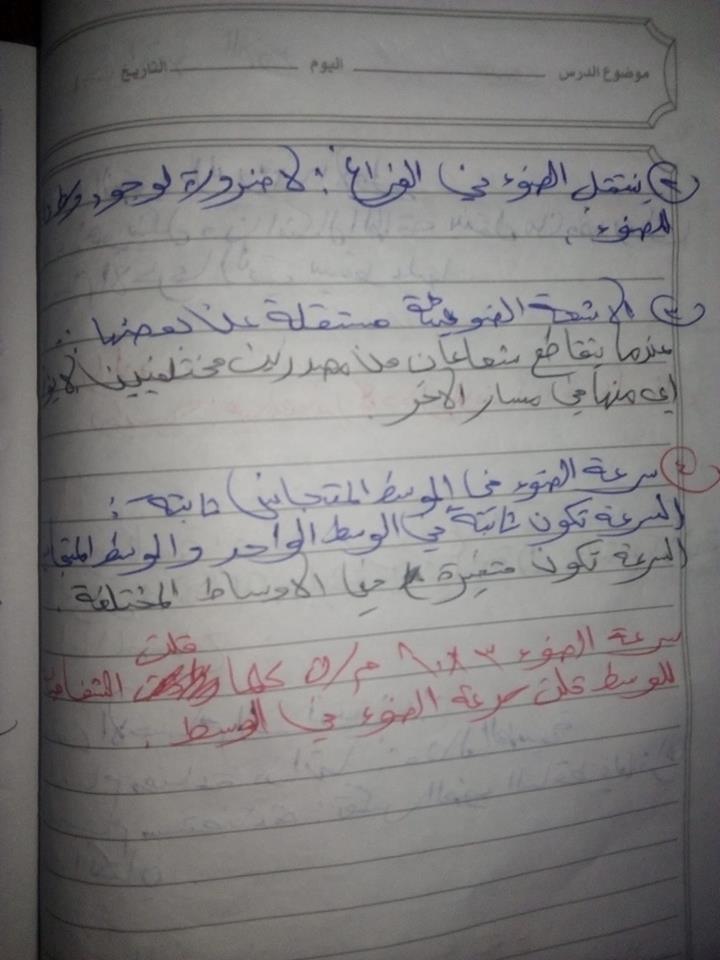 موضوع الدرس ــــــــــ اليوم ــــــــــ التاريخ
② ينتقل الضوء في الفراغ : لا ضرورة لوجود
للضوء .
③ الاشعة الضوئية مستقلة عن بعضها :
عندما يتقاطع شعاعان من مصدرين مختلفين لا
اي منها في مسار الاخر .
④ سرعة الضوء في الوسط المتجانس ثابتة :
السرعة تكون ثابتة في الوسط الواحد والوسط
السرعة تكون متغيرة في الاوساط المختلفة .
سرعة الضوء ٣×١٠٨ م/ث كلما قلت
للوسط قلت سرعة الضوء في الوسط .